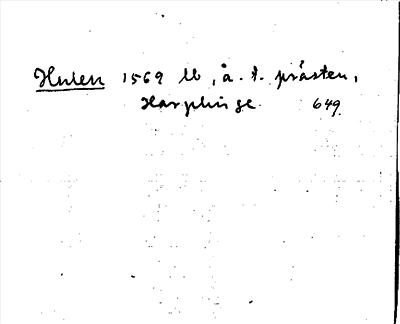 Hulen 1569 lb, å. t. prästen,
Harplinge 649.